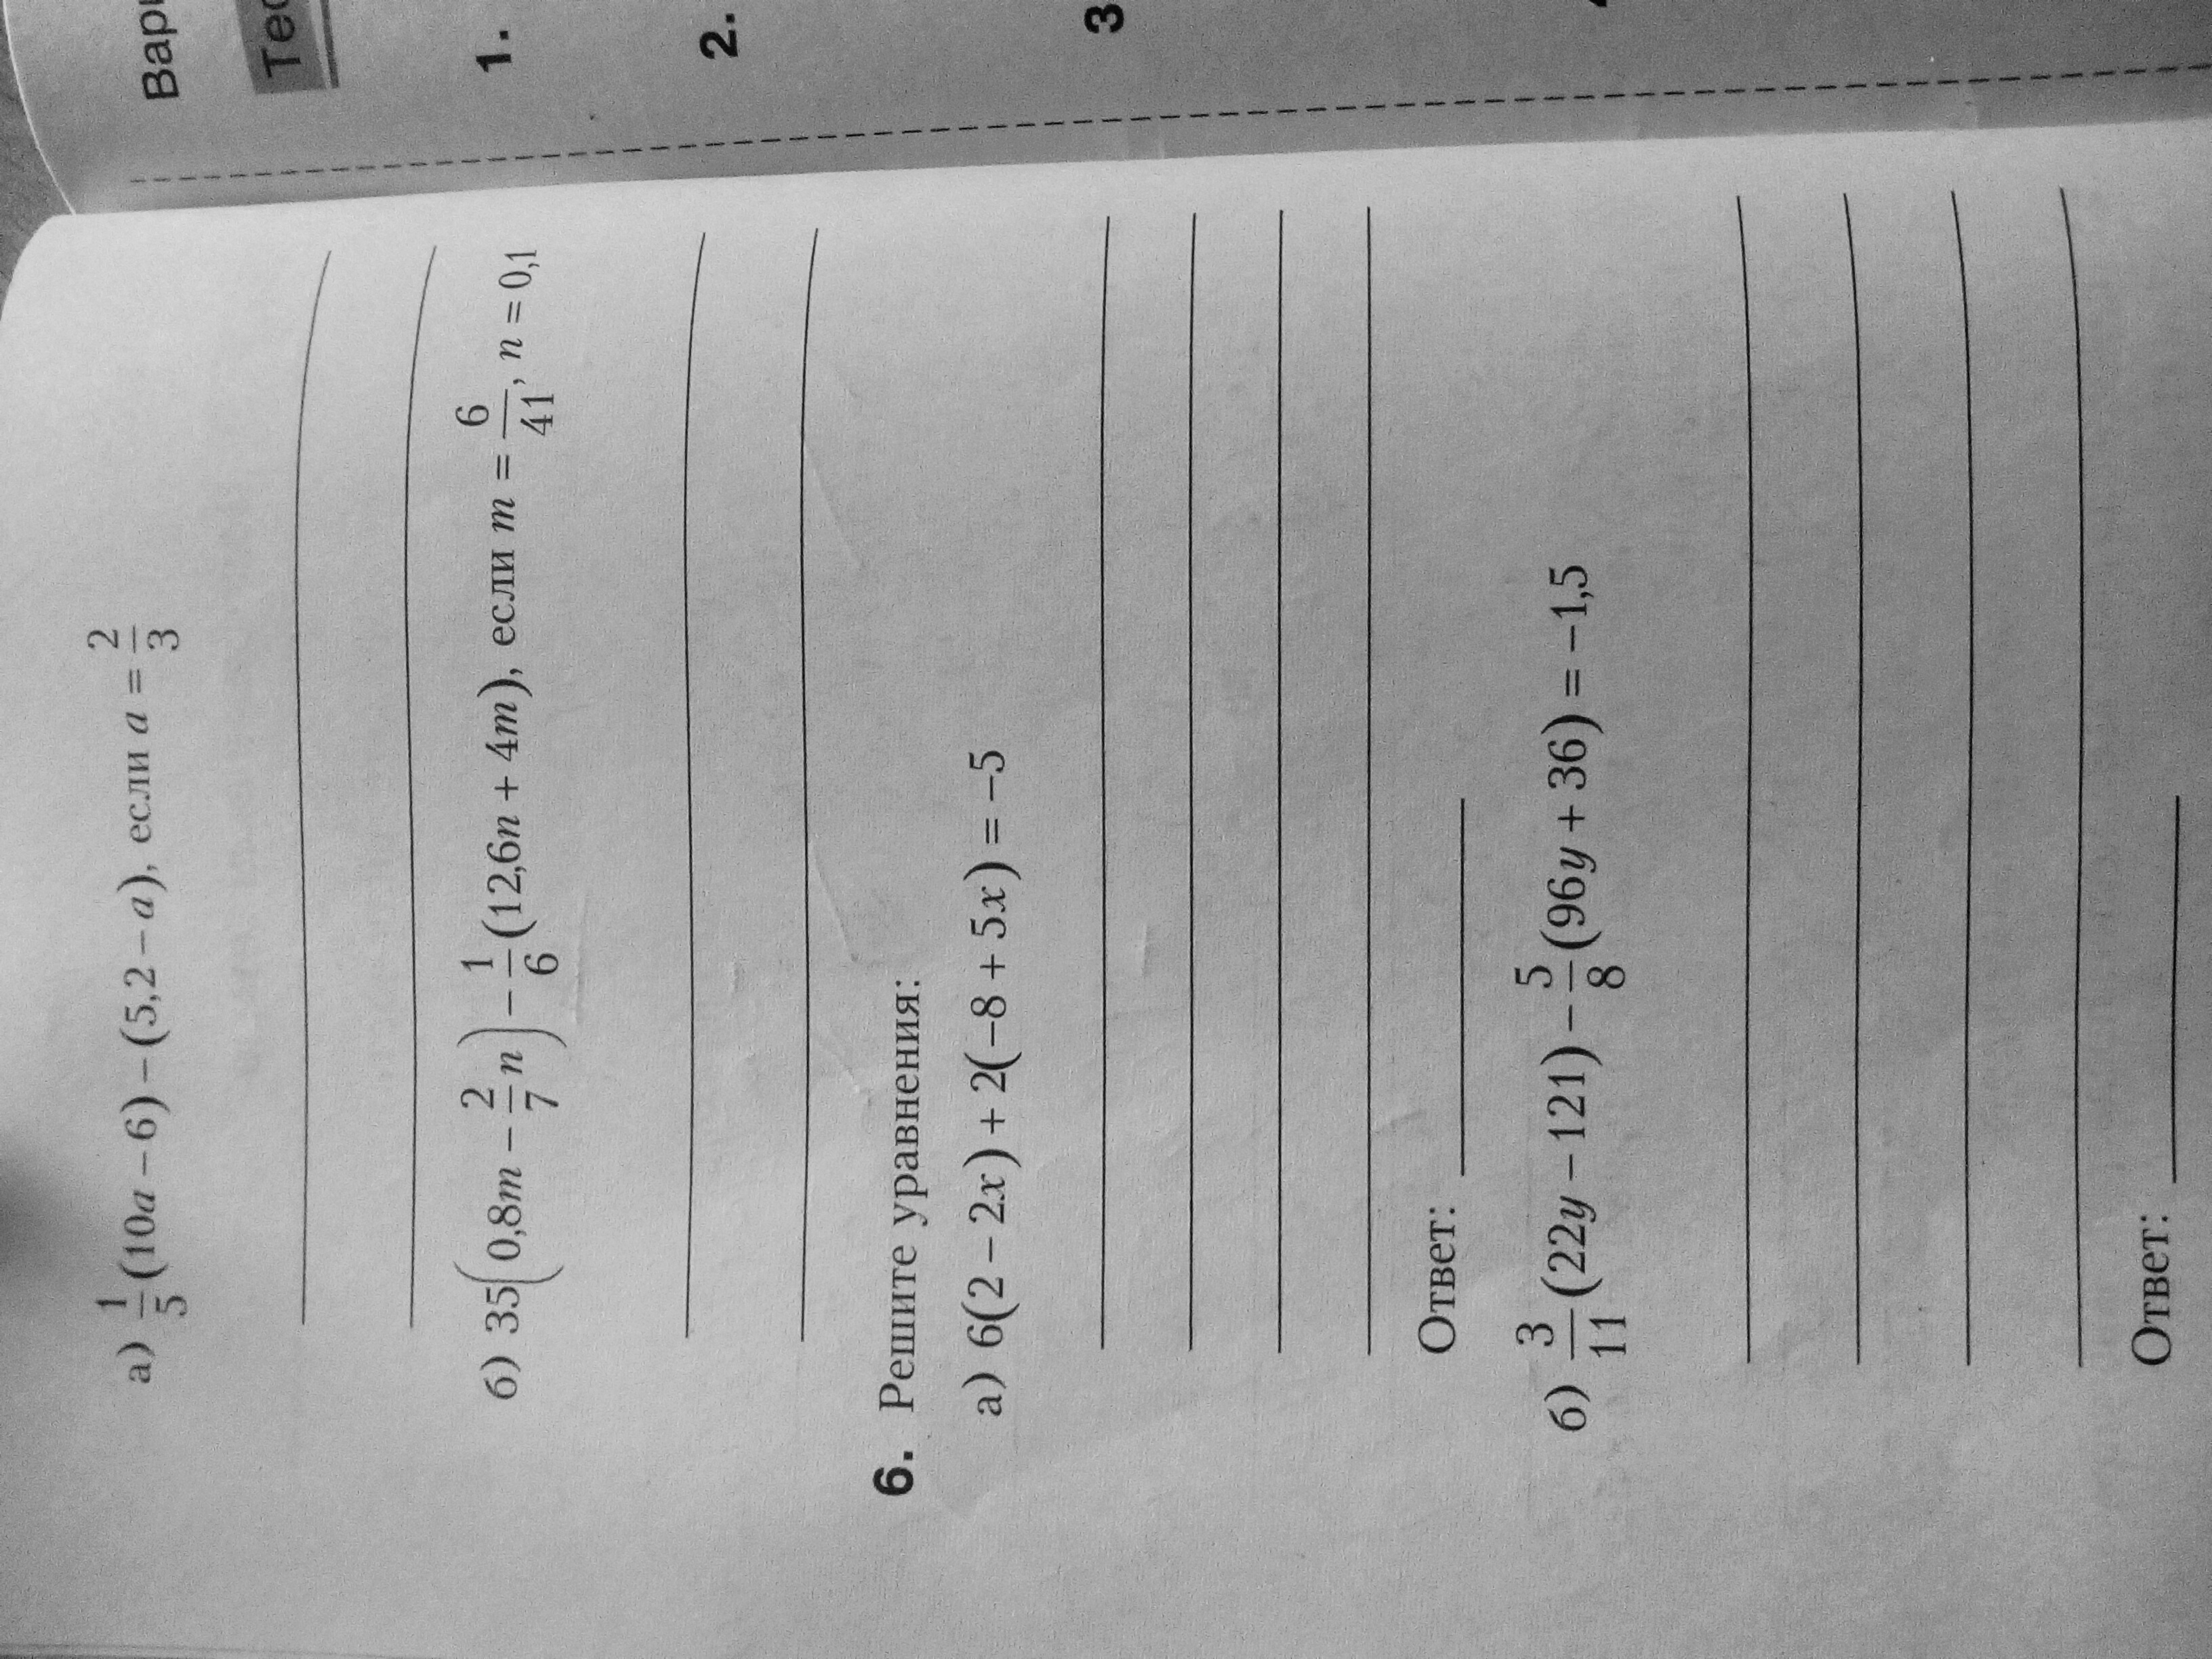 а) 1/5(10a − 6) − (5,2 − a), если a = 2/3
б) 35(0,8m − 2/7 n) − 1/6(12,6n + 4m), если m = 6/41, n = 0,1
6. Решите уравнения:
а) 6(2 − 2x) + 2(−8 + 5x) = −5
Ответ:
б) 3/11(22y − 121) − 5/8(96y + 36) = −1,5
Ответ:
1.
2.
3